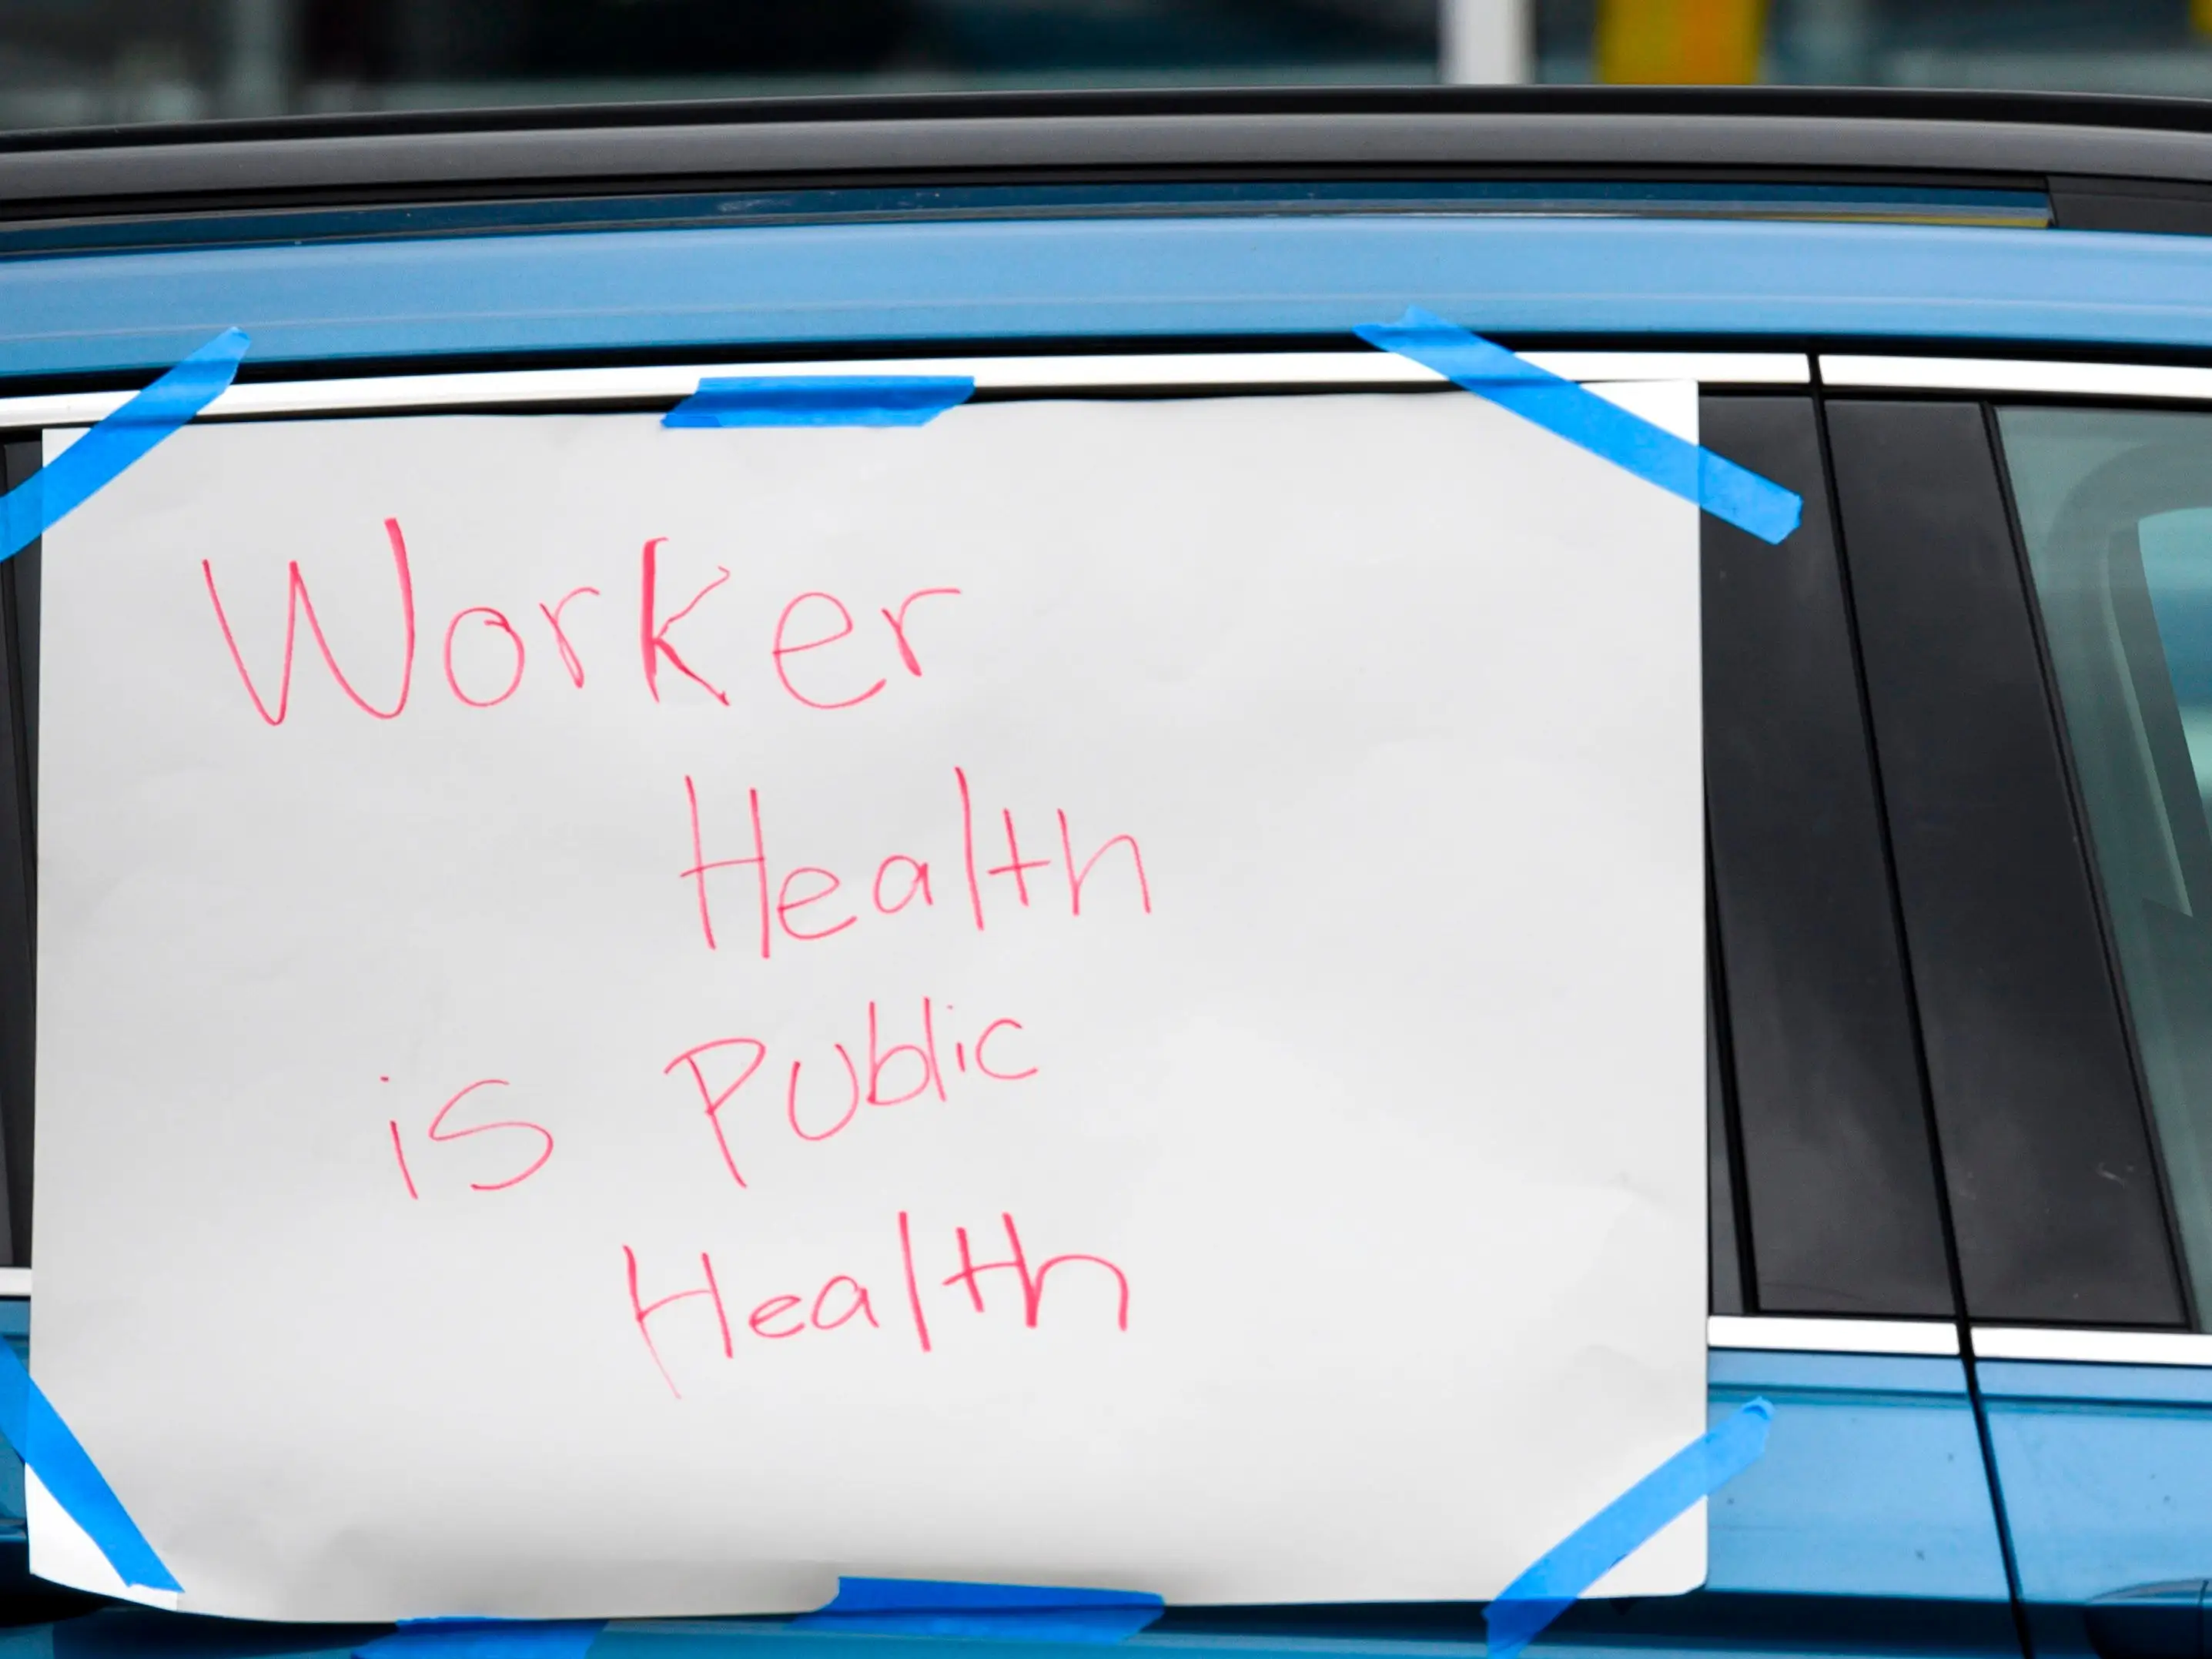 Worker
Health
is Public
Health